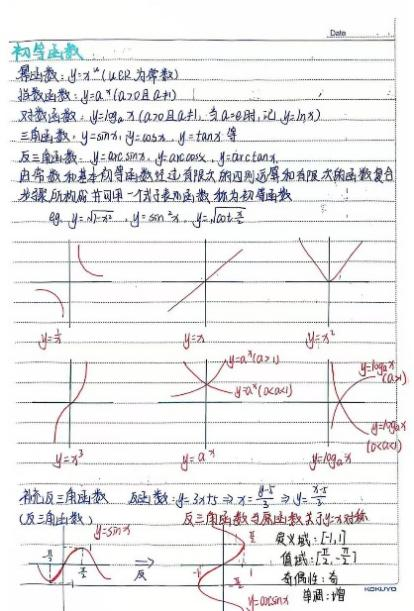 Date
初等函数
幂函数：y=x^u (u∈R为常数)
指数函数：y=a^x (a>0且a≠1)
对数函数：y=log_a x (a>0且a≠1, 当a=e时,记 y=lnx)
三角函数：y=sinx, y=cosx, y=tanx 等
反三角函数：y=arcsinx, y=arccosx, y=arctanx.
由常数和基本初等函数经过有限次的四则运算和有限次的函数复合
步骤所构成并可用一个式子表示函数称为初等函数
eg. y=√1-x², y=sin²x, y=√cot x/2
y=1/x y=x y=x²
y=a^x(a>1)
y=a^x(0<a<1)
y=log_a x
(a>1)
y=log_a x
(0<a<1)
y=x³ y=a^x y=log_a x
补充反三角函数 反函数：y=3x+5 ⇒ x=y-5/3 ⇒ y=x-5/3
(反三角函数) 反三角函数与原函数关于y=x对称
y=sinx
-π/2 π/2
⇒
反
π/2
-1 1
-π/2
定义域：[-1,1]
值域：[π/2,-π/2]
奇偶性：奇
单调：增
KOKUYO